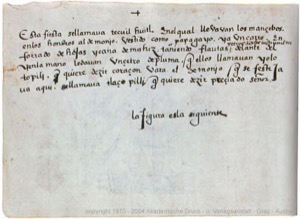 Esta fiesta sellamava tecuil huitl. En la qual llevavan los mançebos
en los hombros al demonjo. vestido como papagayo. y a un
forrado de hojas y caña de maiz. tañendo flautas. delante del
un çetro de pluma. q̃ ellos llamavan yolo
topilli. q̃ quiere dezir coraçon vara el demonjo. q̃ se festeja
va aqui. sellamava tlaço pilli. q̃ quiere dezir preçiado señor.
la figura es la siguiente
copyright 1970 - 2004 Akademische Druck - u. Verlagsanstalt - Graz - Austria